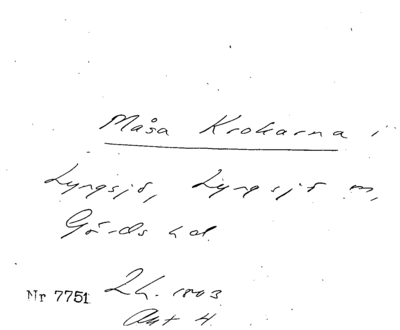 Måsa Krokarna i
Lyngsjö, Lyngsjö sn,
Gärds hd.
Nr 7751 Lh. 1803
Akt 4